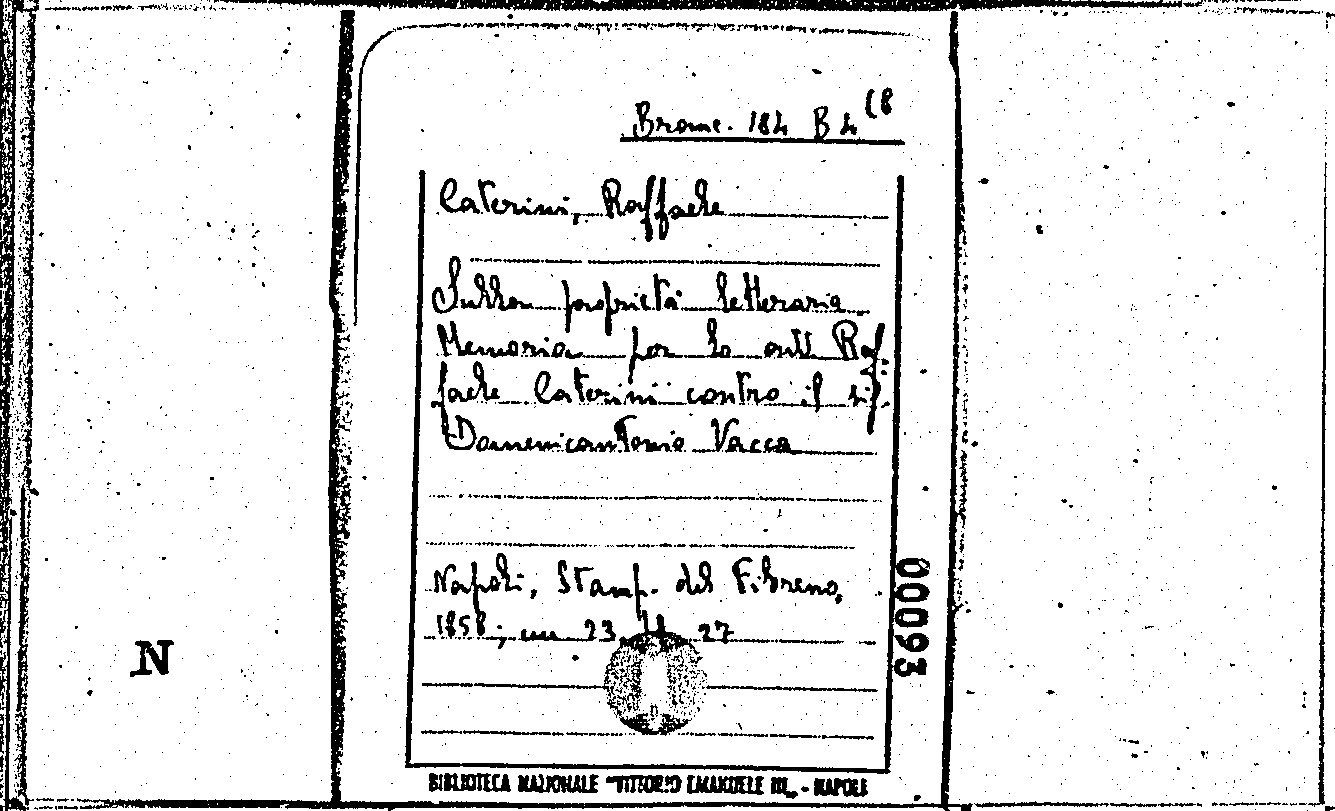 Branc. 184 B 4 (8
Caterini, Raffaele
Sulla proprietà letteraria
Memoria per lo Raf.
faele Caterini contro il sig.
Domenicantonio Vacca
Napoli, Stamp. del Fibreno,
1858; cm 23 27
BIBLIOTECA NAZIONALE "VITTORIO EMANUELE III„ - NAPOLI
00093
N